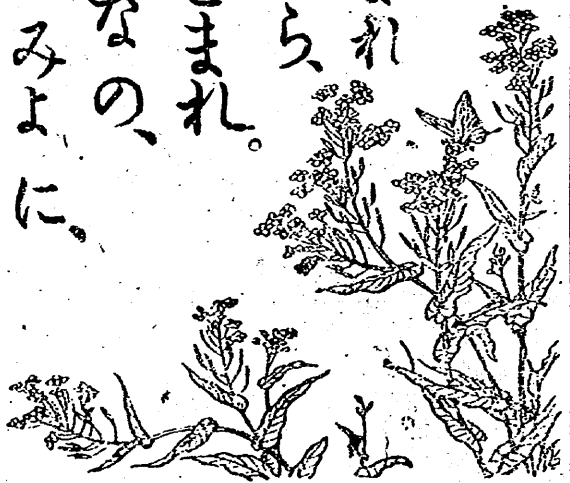 れ
ら、
まれ。
なの、
みよに、